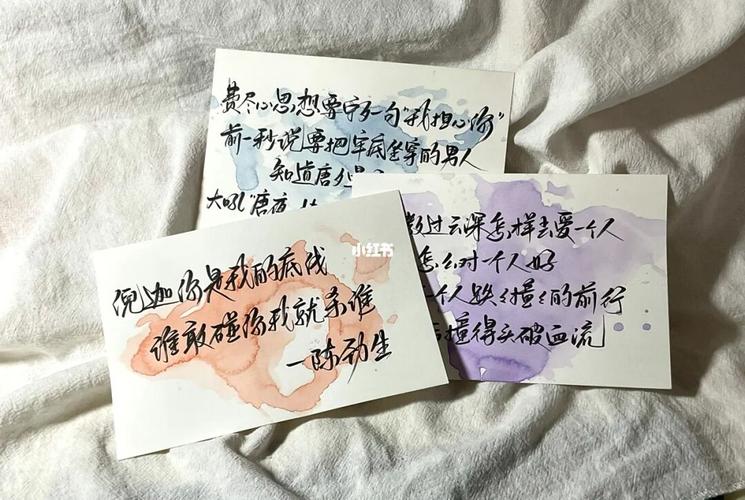 费尽心思想要听一句“我担心你”
前一秒说要把牢底坐穿的男人
知道唐
大吼“唐
教过云深怎样去爱一个人
怎么对一个人好
一个人跌跌撞撞的前行
撞得头破血流
倪迦你是我的底线
谁敢碰你我就杀谁
—陈劲生
小红书